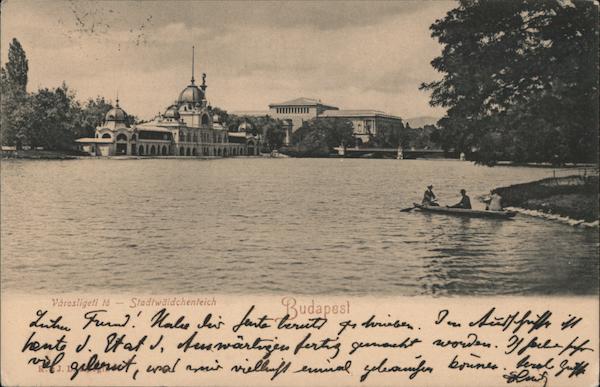 Városligeti tó — Stadtwäldchenteich
Budapest
Lieber Freund! Habe dir heute bereits geschrieben. Im Ausschuss ist
heute d. Etat d. Auswärtigen fertig gemacht worden. Ich habe
viel gelernt, was mir vielleicht einmal gebrauchen können. herzl. Gruss